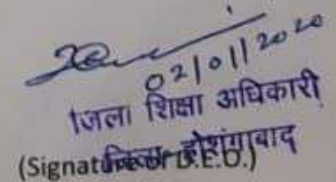 02/01/2020
जिला शिक्षा अधिकारी
जिला होशंगाबाद
(Signature of D.E.O.)